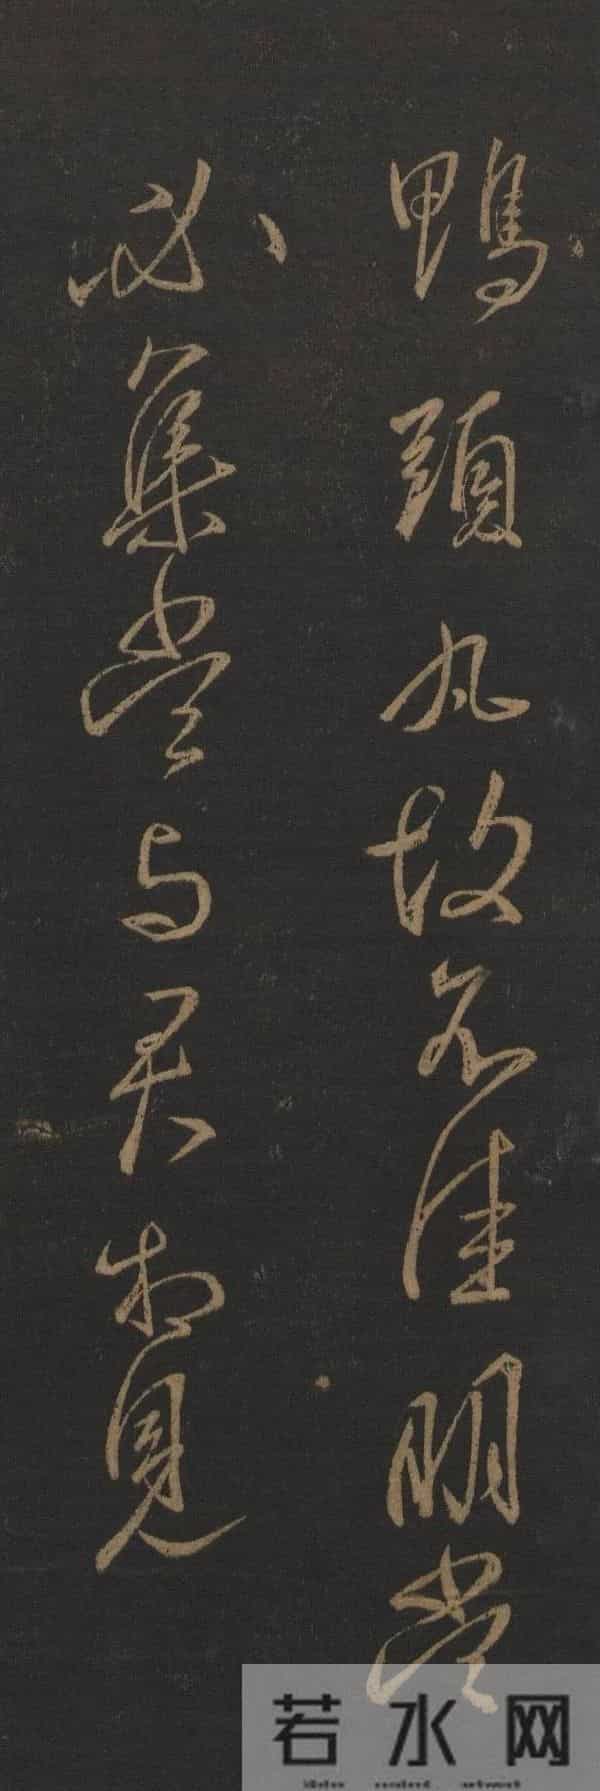 鴨頭丸故不佳明當
必集當与君相見
若水网